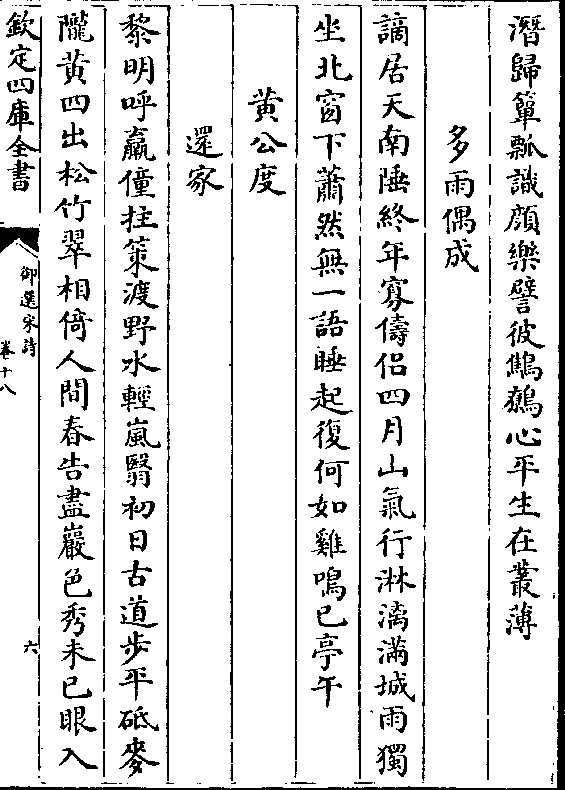 潛歸簞瓢識顔樂譬彼鷦鷯心平生在叢薄
多雨偶成
謫居天南陲終年寡儔侣四月山氣行淋漓滿城雨獨
坐北窗下蕭然無一語睡起復何如雞鳴已亭午
黄公度
還家
黎明呼羸僮拄策渡野水輕嵐翳初日古道步平砥麥
隴黄四出松竹翠相倚人間春告盡巖色秀未已眼入
欽定四庫全書
御選宋詩
卷十八
六